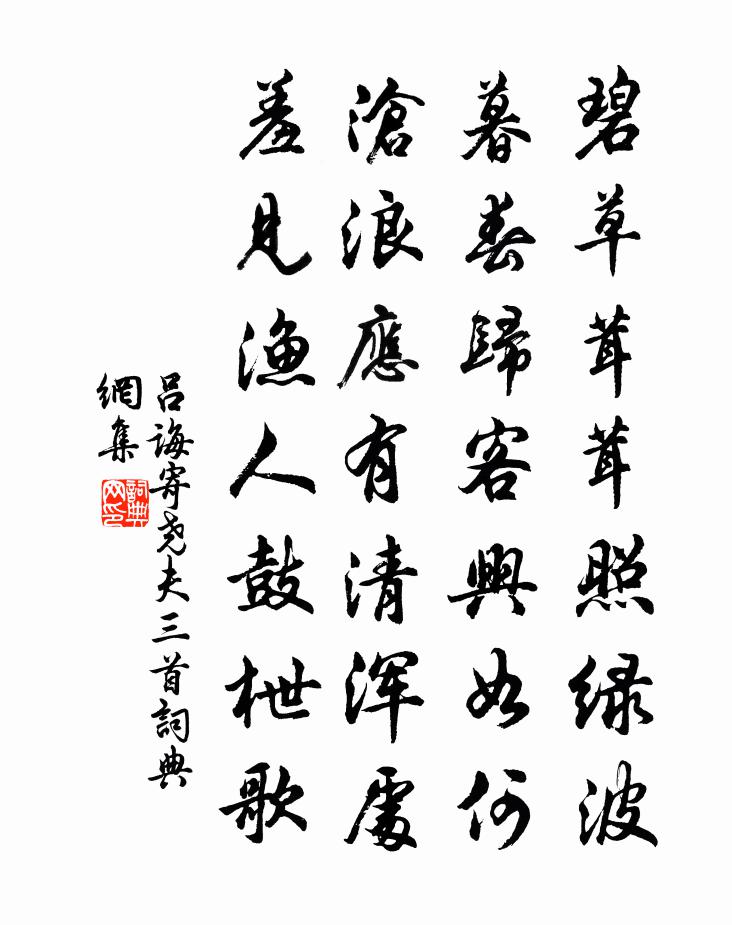 碧草茸茸照绿波
暮春歸客興如何
滄浪應有清浑處
羞見漁人鼓枻歌
吕誨寄尧夫三首詞典
網集
詞典网印